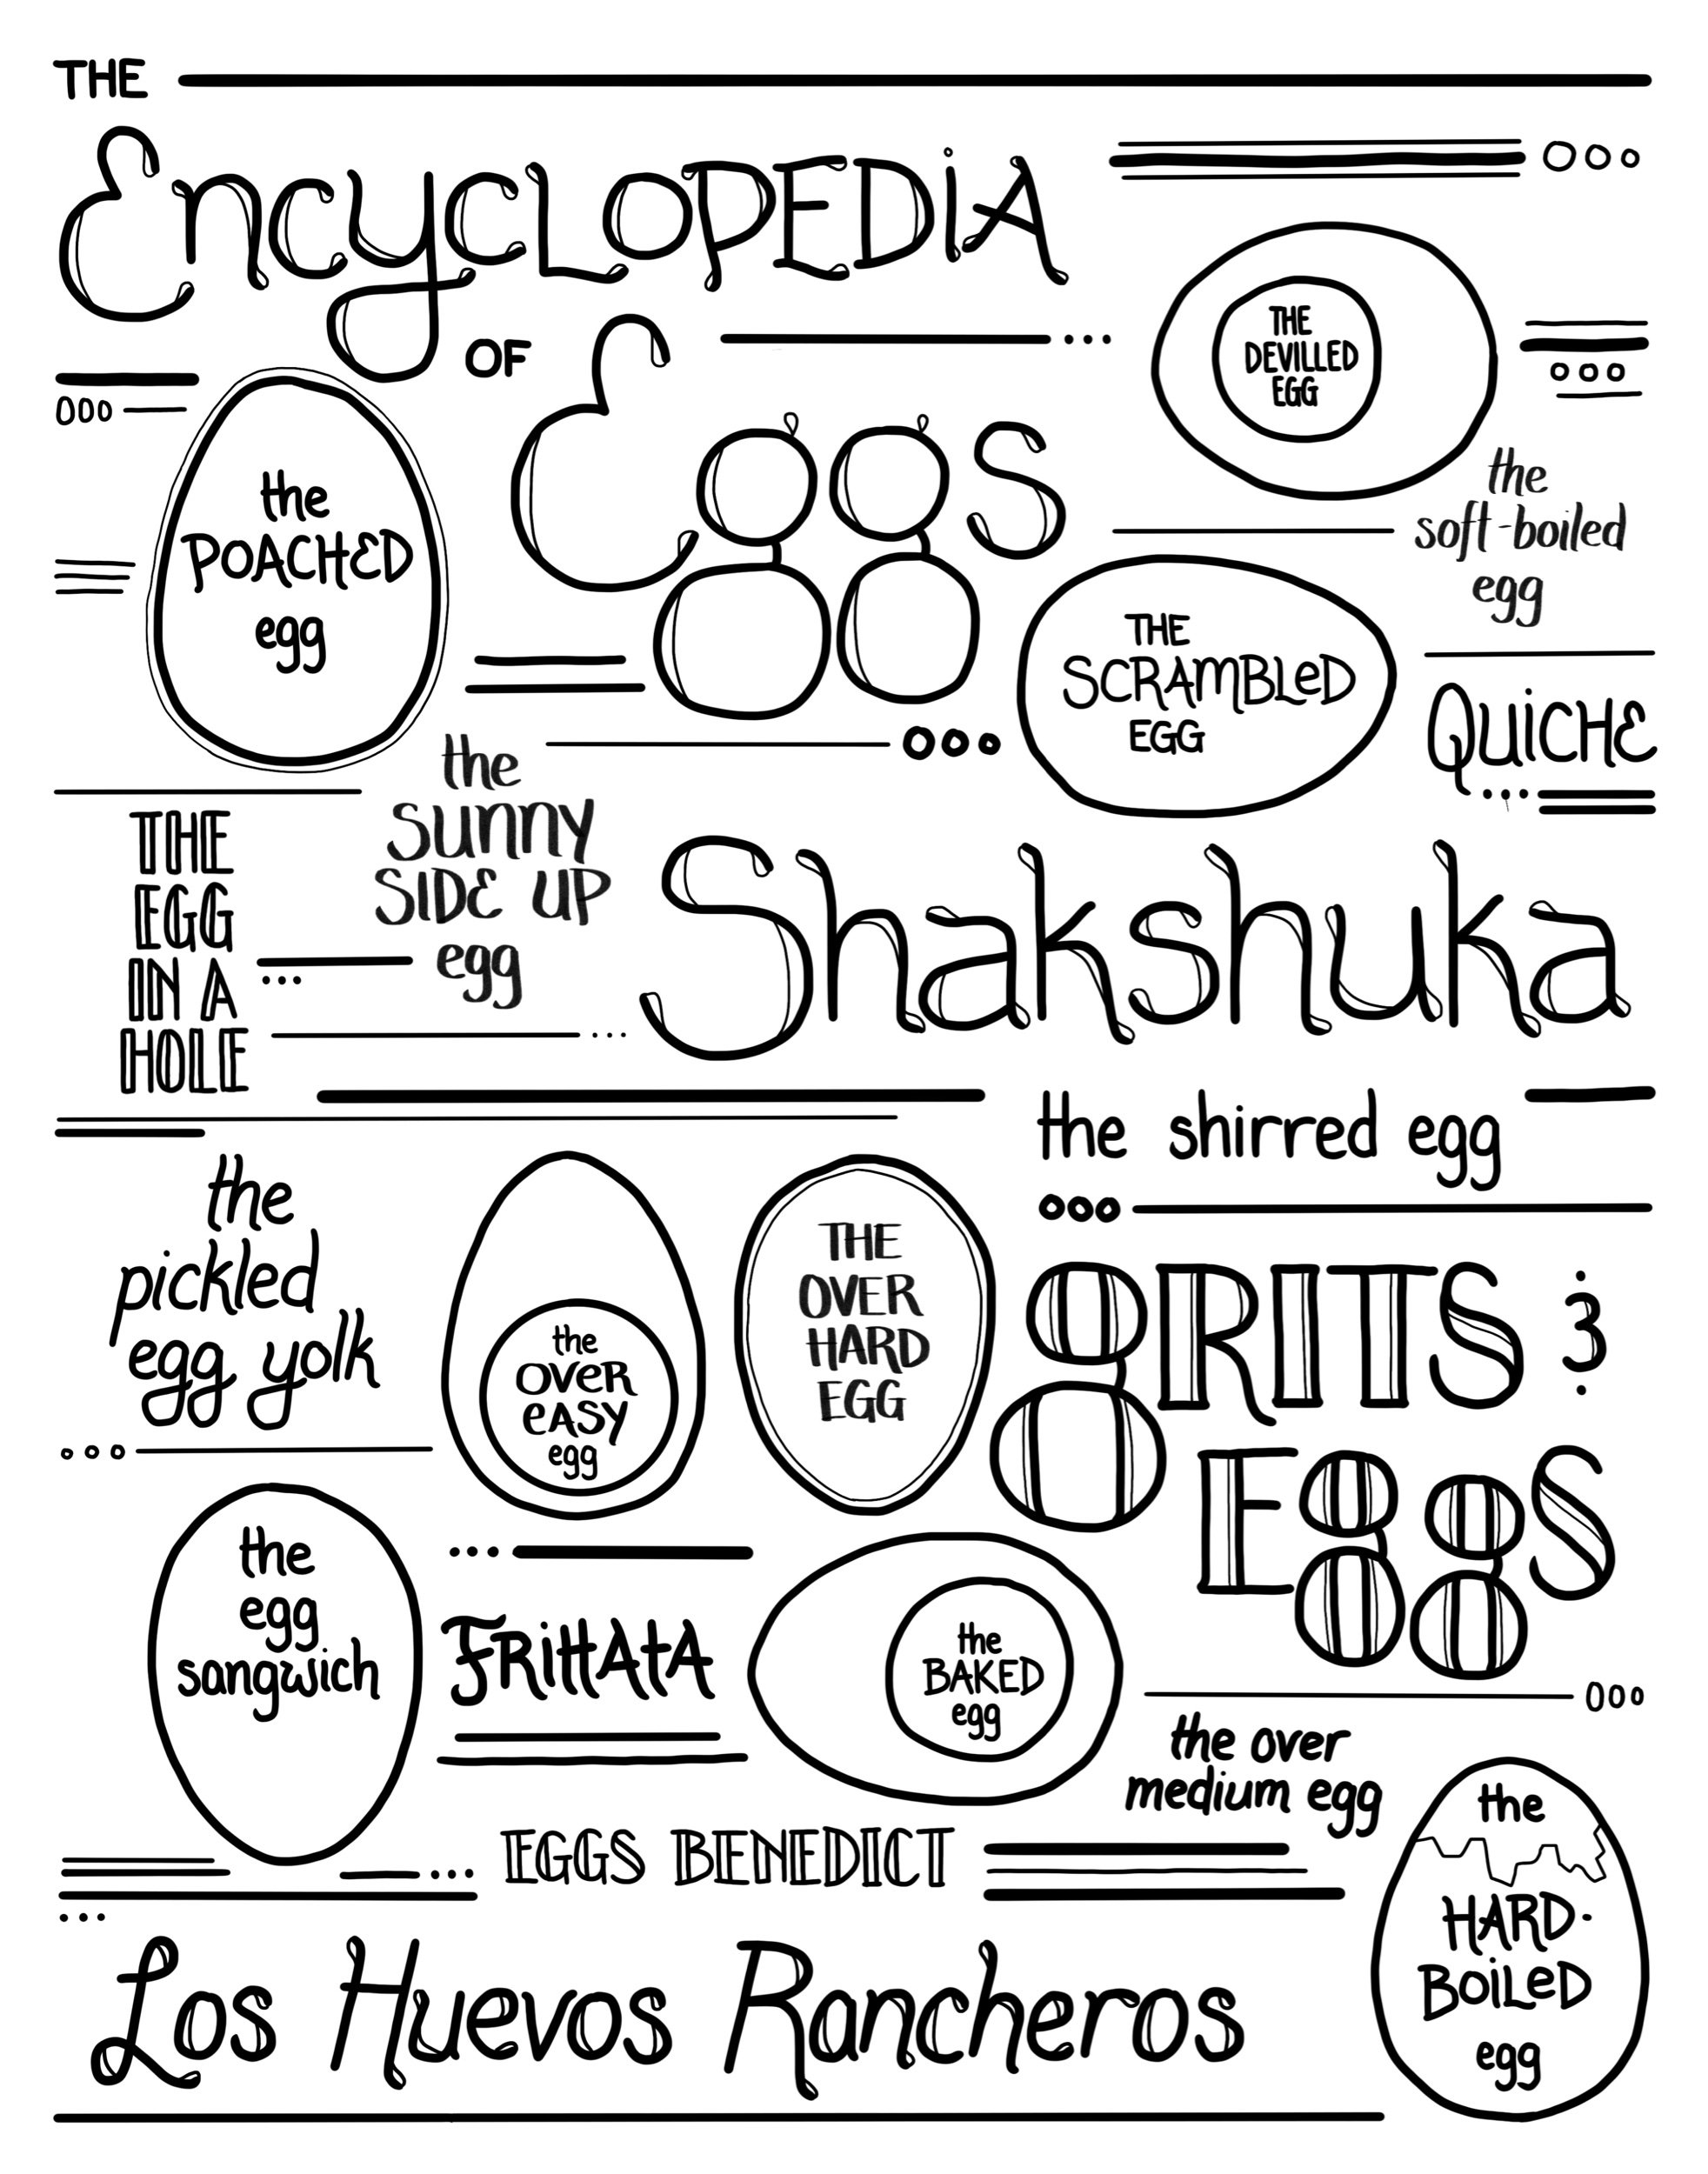 THE
EncycLOPEDiA
OF
Eggs
THE
DEVILLED
EGG
the
POACHED
egg
the
soft-boiled
egg
THE
SCRAmBLeD
EGG
QUiCHE
THE
EGG
IN A
HOLE
the
sunny
SIDE UP
egg
Shakshuka
the shirred egg
the
pickled
egg yolk
the
OVeR
eASY
egg
THE
OVER
HARD
EGG
gRITS &
EggS
the
egg
sangwich
FRittAtA
the
BAKED
egg
the over
medium egg
EGGS BENEDICT
the
HARD-
BOiLeD
egg
Los Huevos Rancheros